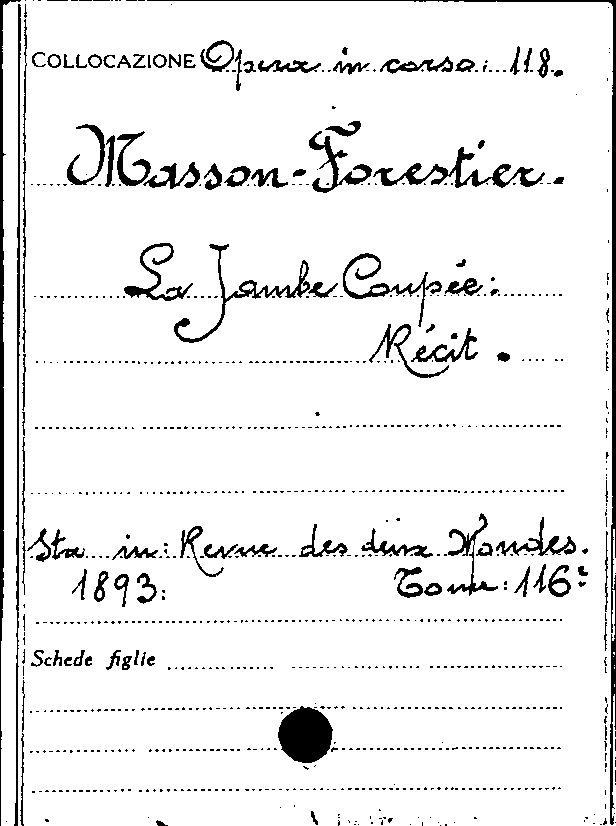 COLLOCAZIONE Opera in corso: 118.
Masson-Forestier.
La Jambe Coupée:
Récit.
Sta in: Revue des deux Mondes.
1893: Tome: 116:
Schede figlie